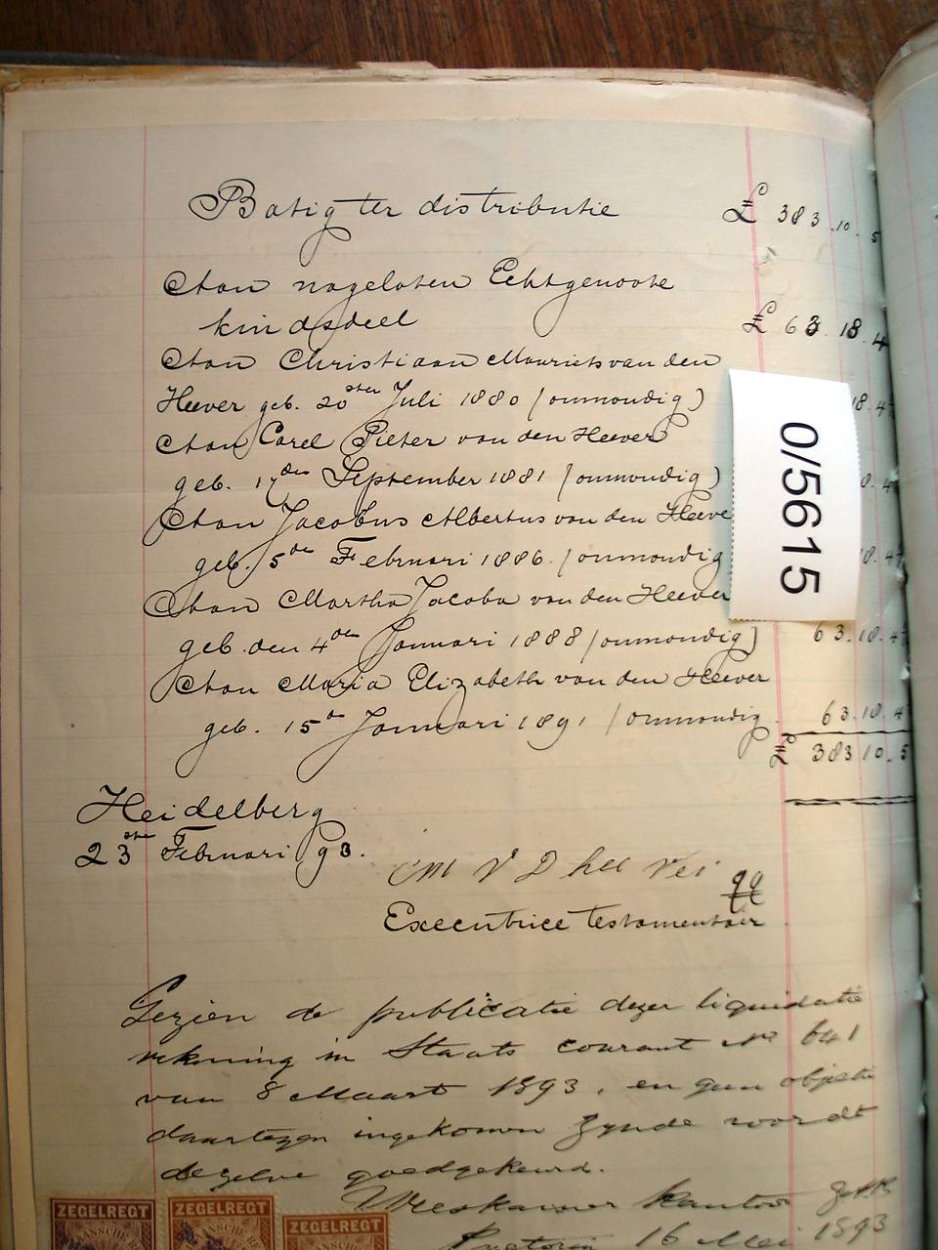 Batig ter distributie £ 383.10.5
Aan nagelaten Echtgenoote
kindsdeel £ 63.18.4
Aan Christiaan Mauriets van den
Heever geb. 20sten Juli 1880 (onmondig) 18.4
Aan Carel Pieter van den Heever
geb. 17den September 1881 (onmondig) 8.4
Aan Jacobus Albertus van den Heeve
geb. 5de Februari 1886 (onmondig 18.4
Aan Martha Jacoba van den Heever
geb. den 4den Januari 1888 (onmondig) 63.18.4
Aan Maria Elizabeth van den Heever
geb. 15de Januari 1891 (onmondig 63.18.4
£ 383 10.5
0/5615
Heidelberg
23ste Februari 93.
M V D qq
Executrice testamentair
Gezien de publicatie dezer liquidatie
rekening in Staats courant No 641
van 8 Maart 1893, en geen objectie
daartegen ingekomen zynde wordt
dezelve goedgekeurd.
Weeskamer kantoor
Pretoria 16 Mei 1893
ZEGELREGT ZEGELREGT ZEGELREGT